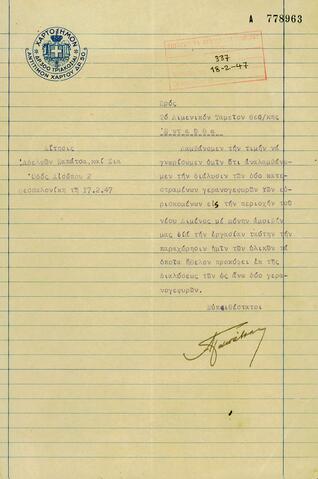 Α 778963
ΧΑΡΤΟΣΗΜΟΝ
ΔΡ. 300 ΤΡΙΑΚΟΣΙΑΙ
ΑΝΤΙΤΙΜΟΝ ΧΑΡΤΟΥ ΔΡ. 50
337
18-2-47
Πρός
Τό Λιμενικόν Ταμεῖον Θεσ/κης
Ἐ ν τ α ῦ θ α
Αἴτησις
Ἀδελφῶν Σαπάτσα καί Σία
Ὁδός Αἰσώπου 2
Θεσσαλονίκη τῇ 17.2.47
Λαμβάνομεν τήν τιμήν νά
γνωρίσωμεν ὑμῖν ὅτι ἀναλαμβάνο-
μεν τήν διάλυσιν τῶν δύο κατε-
στραμένων γερανογεφυρῶν τῶν εὑ-
ρισκομένων εἰς τήν περιοχήν τοῦ
νέου Λιμένος μέ μόνην ἀμοιβήν
μας διά τήν ἐργασίαν ταύτην τήν
παραχώρησιν ἡμῖν τῶν ὑλικῶν τά
ὁποῖα ἤθελον προκύψει ἐκ τῆς
διαλύσεως τῶν ὡς ἄνω δύο γερα-
νογεφυρῶν.
Εὐπειθέστατοι